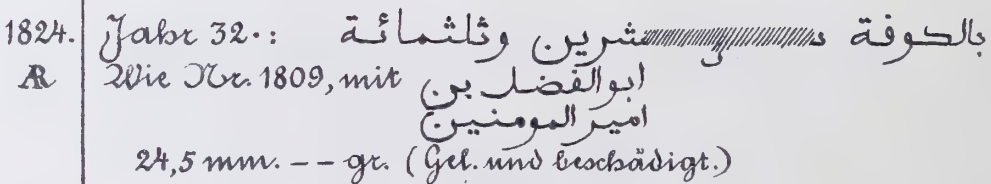 1824. Jahr 32·: بالكوفة شرين وثلثمائة
AR Wie Nr. 1809, mit ابو الفضل بن
امير المومنين
24,5 mm. – – gr. (Gel. und beschädigt.)